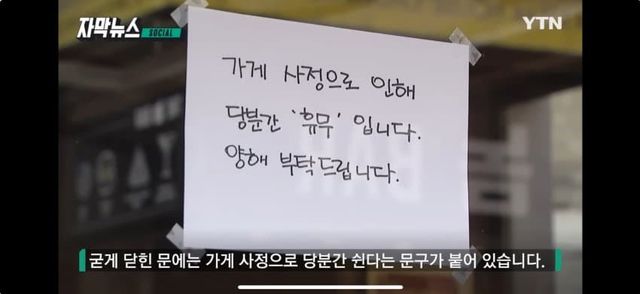 자막뉴스
SOCIAL
YTN
가게 사정으로 인해
당분간 '휴무' 입니다.
양해 부탁드립니다.
굳게 닫힌 문에는 가게 사정으로 당분간 쉰다는 문구가 붙어 있습니다.